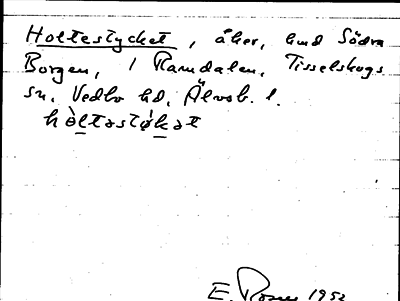 Holtestycket, åker, hmd Södra
Borgen, i Ramdalen, Tisselskogs
sn, Vedbo hd, Älvsb. l.
hòltəstỳkət
E. 1952